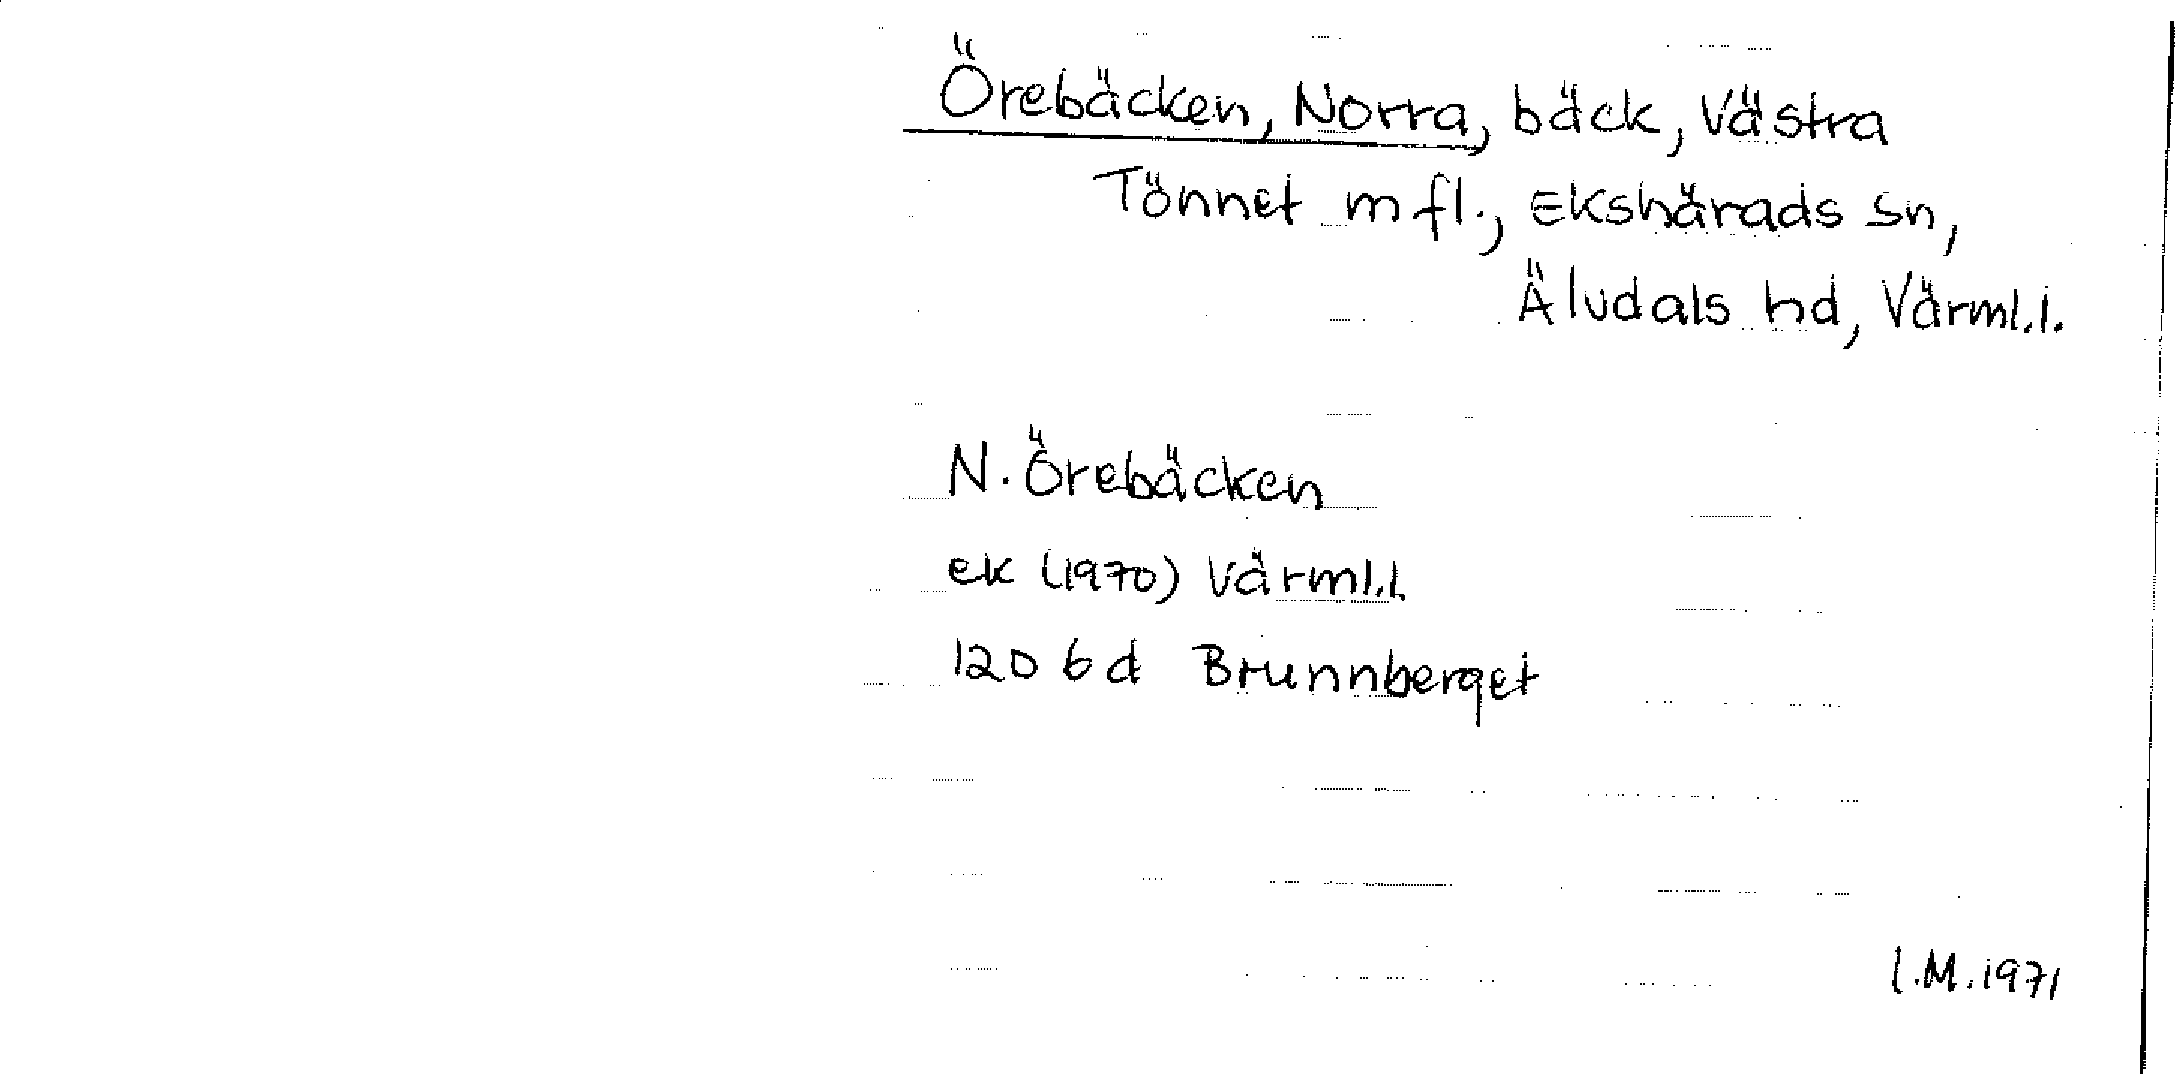 Örebäcken, Norra, bäck, Västra
Tönnet m fl., Ekshärads sn,
Älvdals hd, Värml.l.
N. Örebäcken
ek (1970) Värml.l.
12D 6d Brunnberget
I.M. 1971